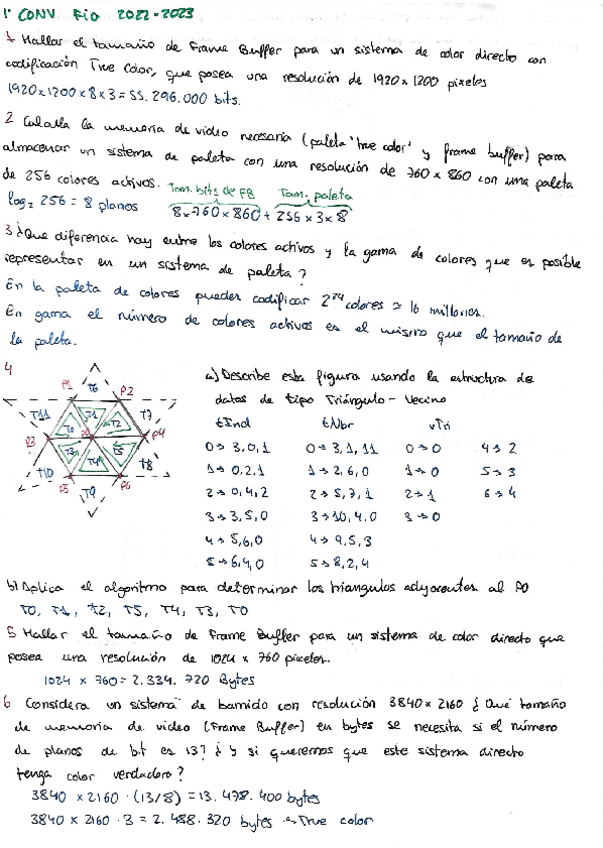 1ª CONV. FIO 2022-2023
1 Hallar el tamaño de Frame Buffer para un sistema de color directo con
codificación True Color, que posea una resolución de 1920 x 1200 pixeles
1920 x 1200 x 8 x 3 = 55.296.000 bits.
2 Calcula la memoria de video necesaria (paleta 'true color' y frame buffer) para
almacenar un sistema de paleta con una resolución de 760 x 860 con una paleta
de 256 colores activos. Tam. bits de FB Tam. paleta
log₂ 256 = 8 planos 8 x 760 x 860 + 256 x 3 x 8
3 ¿Que diferencia hay entre los colores activos y la gama de colores que es posible
representar en un sistema de paleta?
En la paleta de colores puedes codificar 2²⁴ colores ≈ 16 millones.
En gama el número de colores activos es el mismo que el tamaño de
la paleta.
4
P1 T6 P2
T11 T1 T7
T0 T2
P3 P0 P4
T3 T5
T10 T4 T8
P5 T9 P6
a) Describe esta figura usando la estructura de
datos de tipo Triángulo - Vecino
tInd tNbr vTri
0→ 3,0,1 0→ 3,1,11 0→0 4→2
1→ 0,2,1 1→ 2,6,0 1→0 5→3
2→ 0,4,2 2→ 5,7,1 2→1 6→4
3→ 3,5,0 3→ 10,4,0 3→0
4→ 5,6,0 4→ 9,5,3
5→ 6,4,0 5→ 8,2,4
b) Aplica el algoritmo para determinar los triangulos adyacentes al P0
T0, T1, T2, T5, T4, T3, T0
5 Hallar el tamaño de Frame Buffer para un sistema de color directo que
posea una resolución de 1024 x 760 pixeles.
1024 x 760 = 2.334.720 Bytes
6 Considera un sistema de barrido con resolución 3840 x 2160 ¿Qué tamaño
de memoria de video (Frame Buffer) en bytes se necesita si el número
de planos de bit es 13? ¿y si queremos que este sistema directo
tenga color verdadero?
3840 x 2160 · (13/8) = 13.478.400 bytes
3840 x 2160 · 3 = 2.488.320 bytes → True color